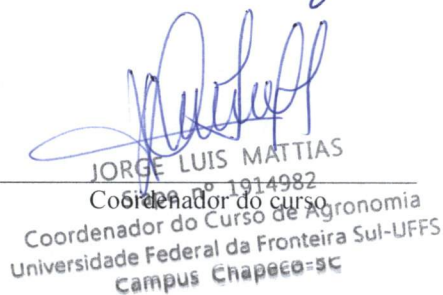 JORGE LUIS MATTIAS
Siape nº 1914982
Coordenador do curso
Coordenador do Curso de Agronomia
Universidade Federal da Fronteira Sul-UFFS
Campus Chapecó-SC